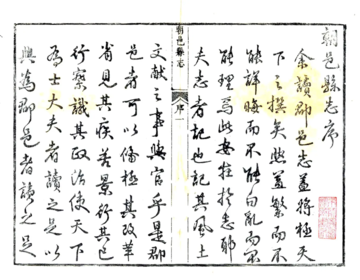 朝邑縣志序
余讀郡邑志蓋將極天
下之撰矣然蓋繁而不
能詳晦而不能白亂而不
能理焉此安在於志耶
夫志者記也記其風土
朝邑縣志
序一
文獻之事與官乎是郡
邑者可以備極其改革
省見其疾苦景行其已
行察識其政治使天下
爲士大夫者讀之足以
興爲郡邑者讀之足